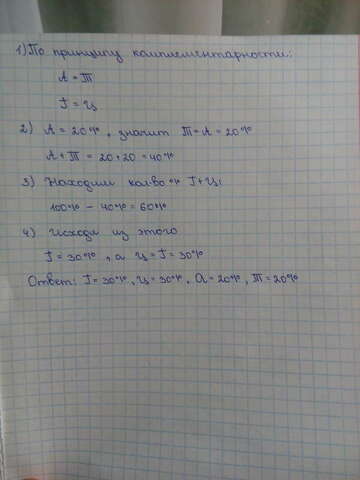 1) По принципу комплементарности:
А = Т
Г = Ц
2) А = 20%, значит Т = А = 20%
А + Т = 20 + 20 = 40%
3) Находим кол-во % Г + Ц:
100% - 40% = 60%
4) Исходя из этого
Г = 30%, а Ц = Г = 30%
Ответ: Г = 30%, Ц = 30%, А = 20%, Т = 20%